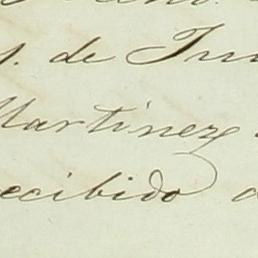 . de Jun
Martinez
ecibido d